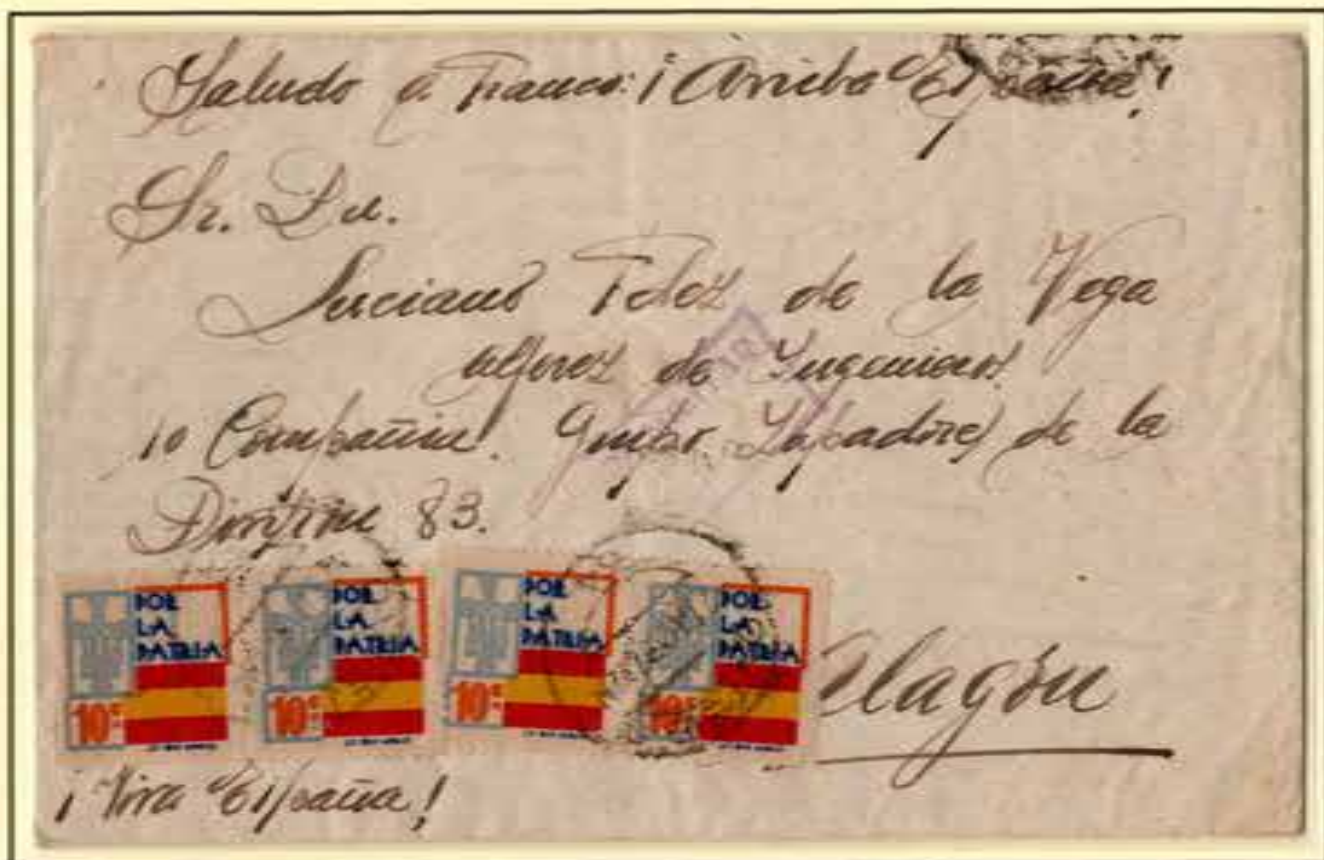 Saludo a Franco: ¡Arriba España!
Sr. Dn.
Luciano de la Vega
alferez de Ingenieros
10 Compañia. Zapadores de la
83.
POR LA PATRIA 10 cs
POR LA PATRIA 10 cs
POR LA PATRIA 10 cs
POR LA PATRIA 10 cs
Alagón
¡Viva España!